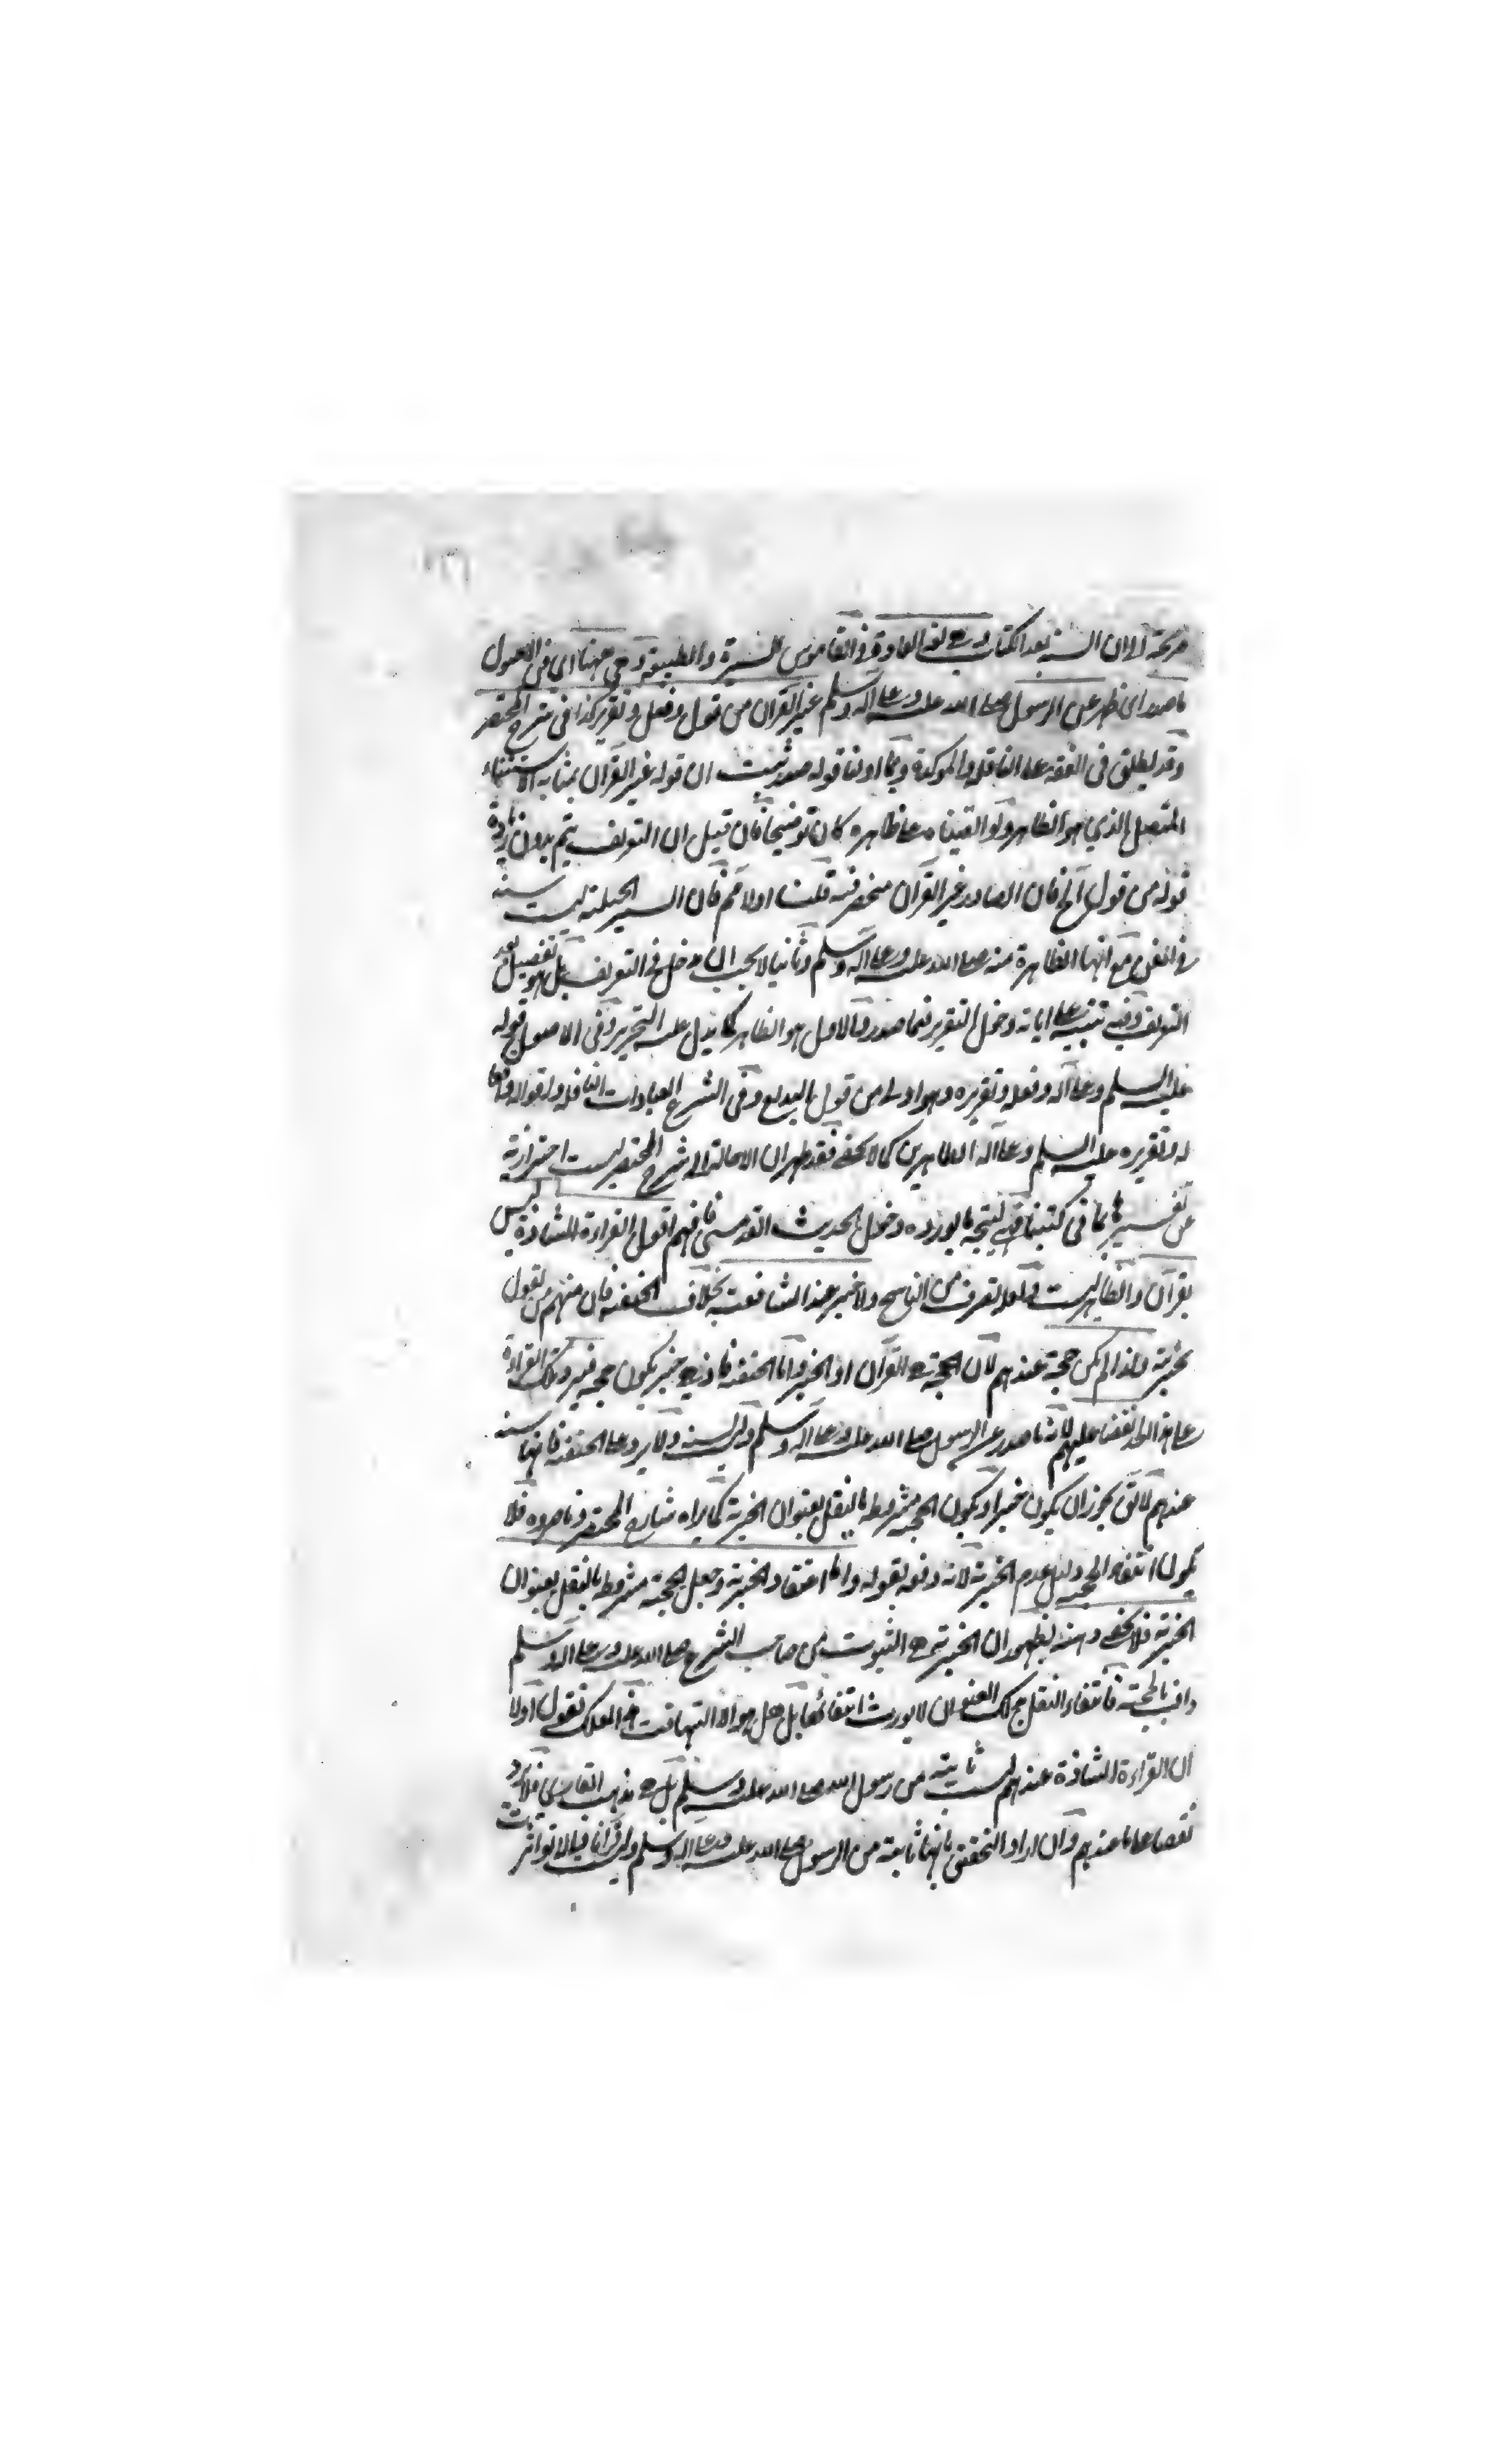 السنة بعد الكتاب وهي لغة العادة وفي القاموس السيرة والطبيعة وهي ههنا اي في الاصول
ما صدر اي ظهر عن الرسول صلى الله عليه وعلى آله وسلم غير القرآن من قول وفعل وتقرير كذا في شرح المختصر
وقد يطلق في الفقه على النافلة والموكدة قوله صدر ان قوله غير القرآن بمثابة الاستثناء
المتصل الذي هو الظاهر ولو القيناه على ظاهره كان توضيحا فان قيل ان التعريف يتم بدون زيادة
قوله من قول الخ فان الصادر غير القرآن منحصر فيه قلنا اولا ثم فان السير الجبلية ليست سنة
في الفن مع انها الظاهرة منه صلى الله عليه وعلى آله وسلم وثانيا لا يجب ان يدخل في التعريف بل هو تفصيل بعد
التعريف وفيه تنبيه على دخول التقرير فيما صدر والاول هو الظاهر كما يدل عليه التحرير وفي الاصول قوله
عليه السلم وعلى آله وفعله وتقريره وهو اولى من قول البديع وفي الشرع العبادات النافلة واقواله وافعا
له وتقريره عليه السلم وعلى آله الطاهرين كما لا يخفى فقد ظهر ان الاحالة الى شرح المختصر ليست احترازية
عن تفسيرها بما في كتبنا دخول الحديث القدسي فافهم اقول القراءة الشاذة ليس
بقرآن والظاهر ليست من الناسخ ولا خبر عند الشافعية بخلاف الحنفية فان منهم من يقول
بخبريته ولذا لم يكن حجة عندهم لان الحجة هي القرآن او الخبر واما الحنفية خبر يكون حجة فيرد تلك القراءة
على هذا الحد نقضا عليهم لانه ما صدر عن الرسول صلى الله عليه وعلى آله وسلم وليس سنة ولا يرد على الحنفية فانها سنة
عندهم لا يقال يجوز ان يكون خبرا ويكون الحجية مشروطة بالنقل بعنوان الخبرية كما يراه شارح المختصر فلا
يكون انتفاء الحجية دليل عدم الخبرية لانه دفعه بقوله واما اعتقاد الخبرية وجعل الحجية مشروطة بالنقل بعنوان
الخبرية فلا يخفى وهنه لظهور ان الخبرية هي الثبوت من صاحب الشرع صلى الله عليه وعلى آله وسلم
بالحجية فانتفاء النقل بذلك العنوان لا يورث انتفائها بل هل هو الا التهافت نقول اولا
ان القراءة الشاذة عندهم ليست ثابتة من رسول الله صلى الله عليه وسلم بل هي مذهب القاري فلا يرد
نقضا على ما عندهم وان اراد التحقيق بانها ثابتة من الرسول صلى الله عليه وعلى آله وسلم وليست قرآنا